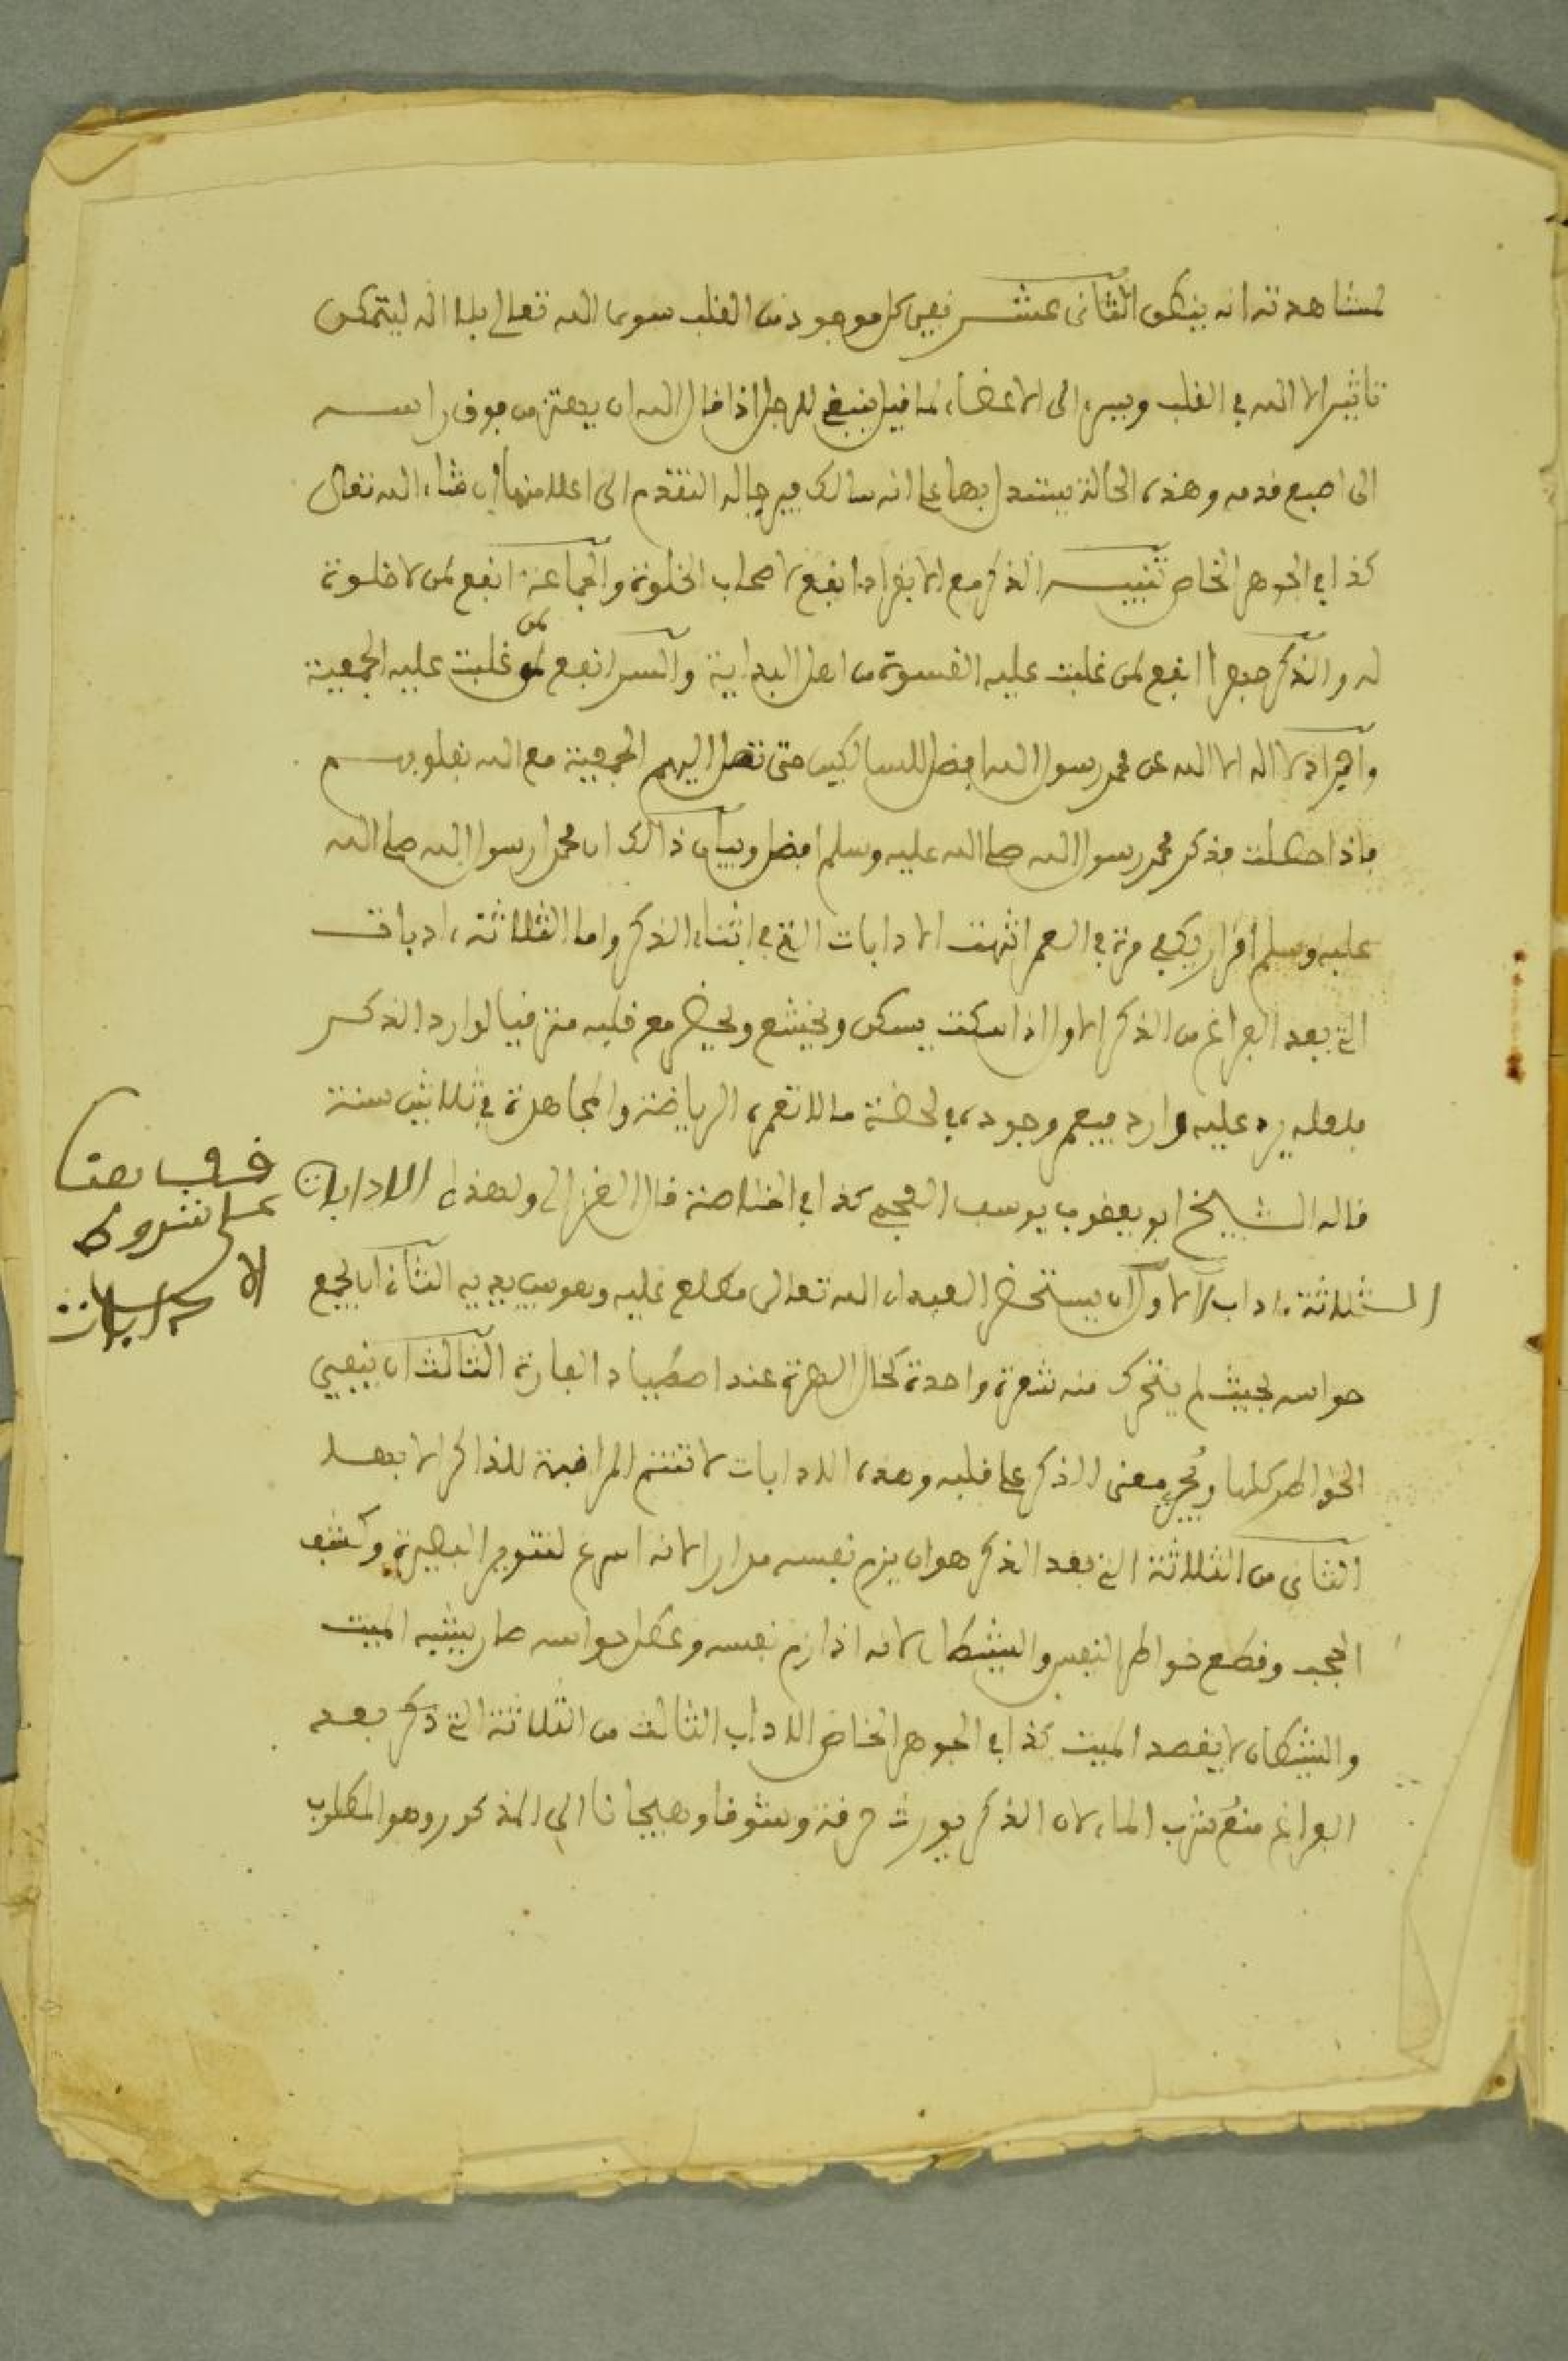 لمشاهدته انه ينطق الثانى عشر نفي كل موجود من القلب سوى الله تعالى بلا اله ليتمكن
تاثير الا الله في القلب ويسرى الى الاعضاء لما قيل ينبغي للرجل اذا قال الله ان يهتز من فوق راسه
الى اصبع قدمه وهذه الحالة يستدل بها على انه سالك فيرجى له التقدم الى اعلا منها ان شاء الله تعالى
كذا في الجوهر الخاص تنبيه الذكر مع الانفراد انفع لاصحاب الخلوة والجماعة انفع لمن لا خلوة
له والذكر جهرا انفع لمن غلبت عليه القسوة من اهل البداية والسر انفع لمن غلبت عليه الجمعية
وافراد لا اله الا الله عن محمد رسول الله افضل للسالكين حتى تحصل اليهم الجمعية مع الله بقلوبهم
فاذا حصلت فذكر محمد رسول الله صلى الله عليه وسلم افضل وبيان ذالك ان محمدا رسول الله صلى الله
عليه وسلم اقرار يكفي مرة في العمر انتهت الادابات التي في اثناء الذكر واما الثلاثة ادبات
التي بعد الفراغ من الذكر الاول اذا سكت يسكن ويخشع ويحضر مع قلبه مترقبا لوارد الذكر
فلعله يرد عليه وارد فيعم وجوده في لحظة ما لا تعمره الرياضة والمجاهدة في ثلاثين سنة
قاله الشيخ ابو يعقوب يوسف العجمي كذا في الخلاصة قال الغزالي ولهذه الادابات
الثلاثة اداب الاول ان يستحضر العبد ان الله تعالى مطلع عليه وهو بين يديه الثانى ان يجمع
حواسه بحيث لم يتحرك منه شعرة واحدة كحال الهرة عند اصطياد الفارة الثالث ان ينفي
الخواطر كلها ويُجرِي معنى الذكر على قلبه وهذه الادابات لا تتم المراقبة للذاكر الا بها
الثانى من الثلاثة التي بعد الذكر هو ان يزم نفسه مرارا لانه اسرع لتنوير البصيرة وكشف
الحجب وقطع خواطر النفس والشيطان لانه اذا زم نفسه وعطل حواسه صار يشبه الميت
والشيطان لا يقصد الميت كذا في الجوهر الخاص الاداب الثالث من الثلاثة التي ذكر بعد
الفراغ منعُ شرب الماء لان الذكر يورث حرقة وشوقا وهيجانا الى المذكور وهو المطلوب
قف هنا
على شروط
الادابات